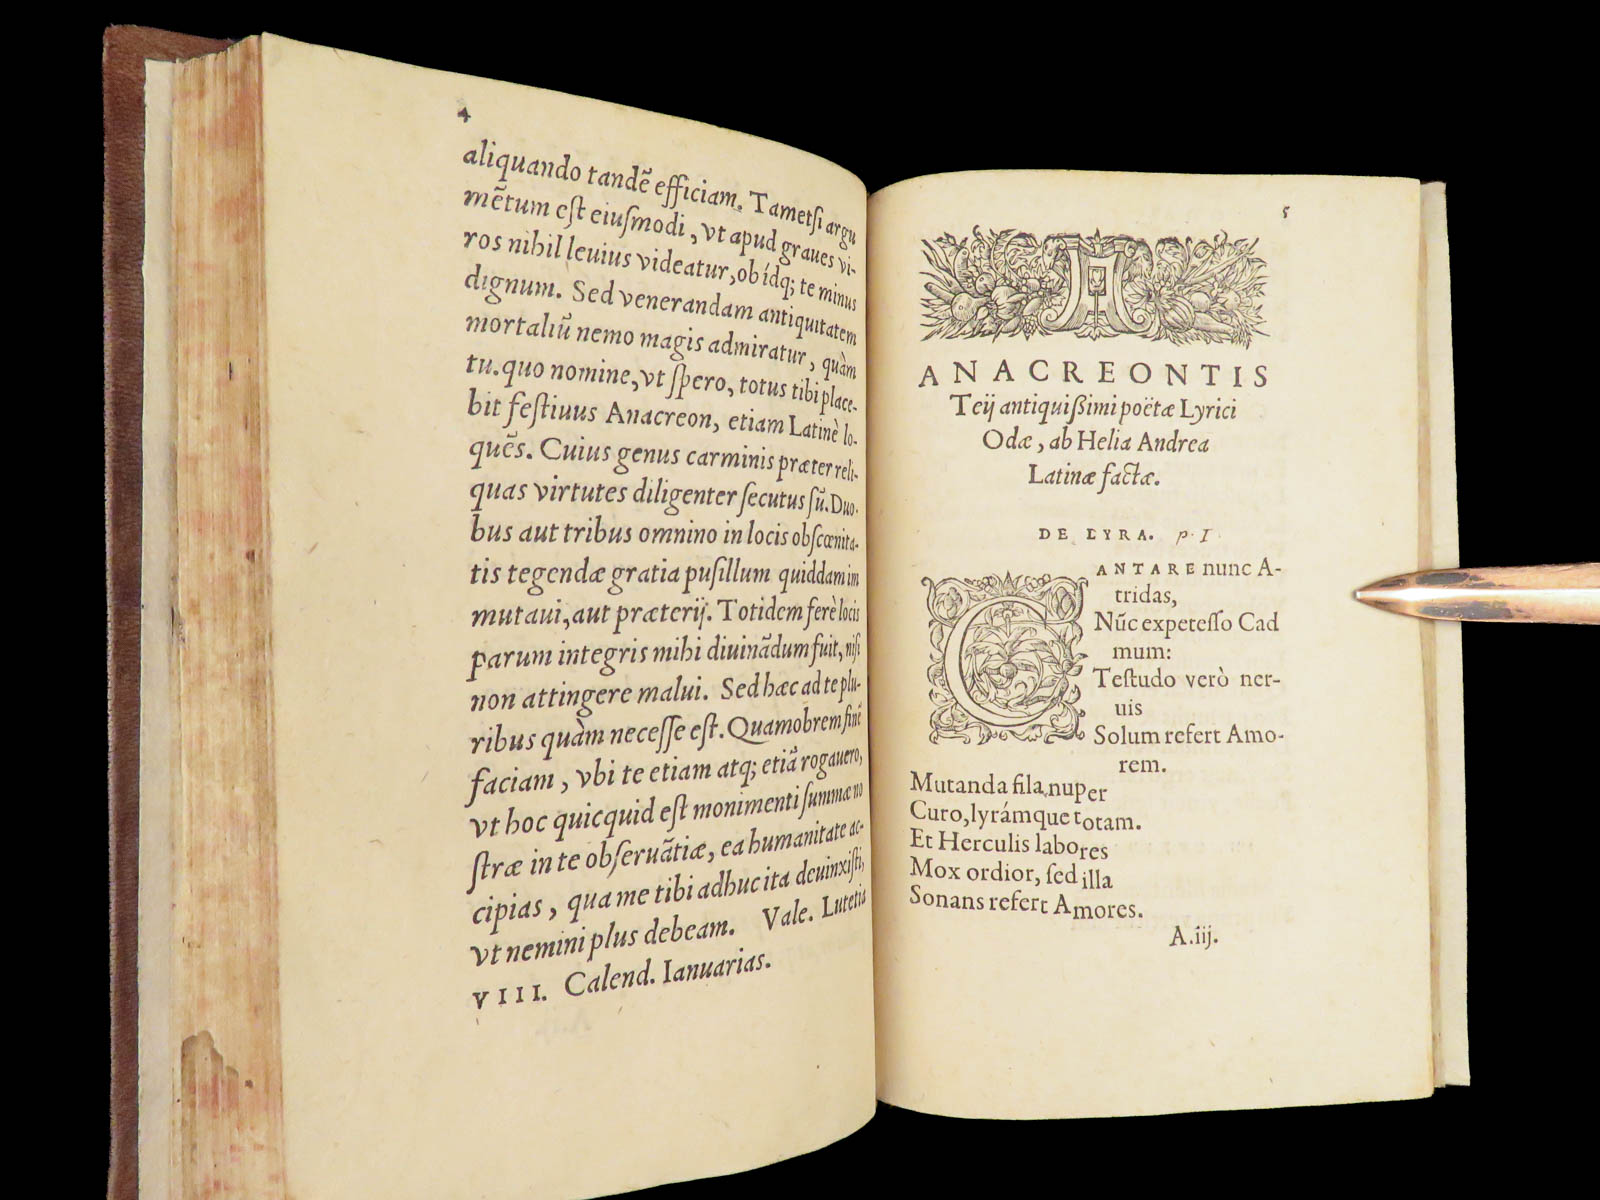 4
aliquando tandē efficiam. Tametsi argu
mētum est eiusmodi, vt apud graues vi-
ros nihil leuius videatur, ob idq; te minus
dignum. Sed venerandam antiquitatem
mortaliū nemo magis admiratur, quàm
tu. quo nomine, vt spero, totus tibi place-
bit festiuus Anacreon, etiam Latinè lo-
quēs. Cuius genus carminis præter reli-
quas virtutes diligenter secutus sū. Duo-
bus aut tribus omnino in locis obscœnita-
tis tegendæ gratia pusillum quiddam im
mutaui, aut præterij. Totidem ferè locis
parum integris mihi diuinādum fuit, nisi
non attingere malui. Sed hæc ad te plu-
ribus quàm necesse est. Quamobrem finē
faciam, vbi te etiam atq; etiā rogauero,
vt hoc quicquid est monimenti summæ no
stræ in te obseruātiæ, ea humanitate ac-
cipias, qua me tibi adhuc ita deuinxisti,
vt nemini plus debeam. Vale. Lutetia
VIII. Calend. Ianuarias.
5
ANACREONTIS
Teij antiquißimi poëtæ Lyrici
Odæ, ab Helia Andrea
Latinæ factæ.
DE LYRA. p. I
CANTARE nunc A-
tridas,
Nūc expetesso Cad
mum:
Testudo verò ner-
uis
Solum refert Amo-
rem.
Mutanda fila nuper
Curo, lyrámque totam.
Et Herculis labores
Mox ordior, sed illa
Sonans refert Amores.
A.iij.